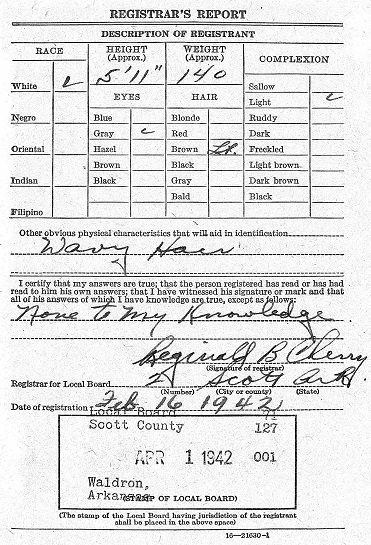 REGISTRAR'S REPORT
DESCRIPTION OF REGISTRANT
RACE
HEIGHT
(Approx.)
WEIGHT
(Approx.)
COMPLEXION
5' 11"
140
White
Sallow
Light
EYES
HAIR
Negro
Blue
Blonde
Ruddy
Gray
Red
Dark
Oriental
Hazel
Brown Lt.
Freckled
Brown
Black
Light brown
Indian
Black
Gray
Dark brown
Bald
Black
Filipino
Other obvious physical characteristics that will aid in identification
Wavy Hair
I certify that my answers are true; that the person registered has read or has had
read to him his own answers; that I have witnessed his signature or mark and that
all of his answers of which I have knowledge are true, except as follows:
None to My Knowledge
Reginald B Cherry
(Signature of registrar)
Registrar for Local Board Scott Ark.
(Number) (City or county) (State)
Date of registration Feb. 16 1942
Local Board 71
Scott County 127
APR 1 1942 001
Waldron,
Arkansas
(STAMP OF LOCAL BOARD)
(The stamp of the Local Board having jurisdiction of the registrant
shall be placed in the above space)
16—21630-1